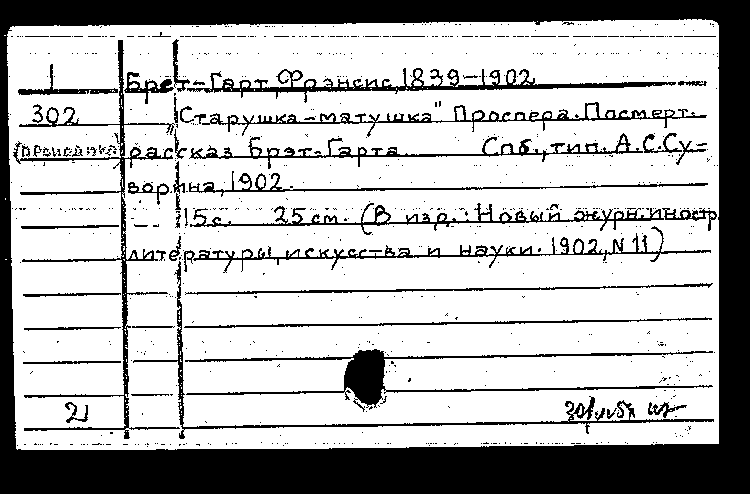 1 Брет-Гарт, Фрэнсис, 1839-1902
302 "Старушка-матушка" Проспера. Посмерт.
рассказ Брэт-Гарта Спб., тип. А.С.Су-
ворина, 1902.
15с. 25 см. (В изд.: Новый журн. иностр.
литературы, искусства и науки. 1902, N 11)
21